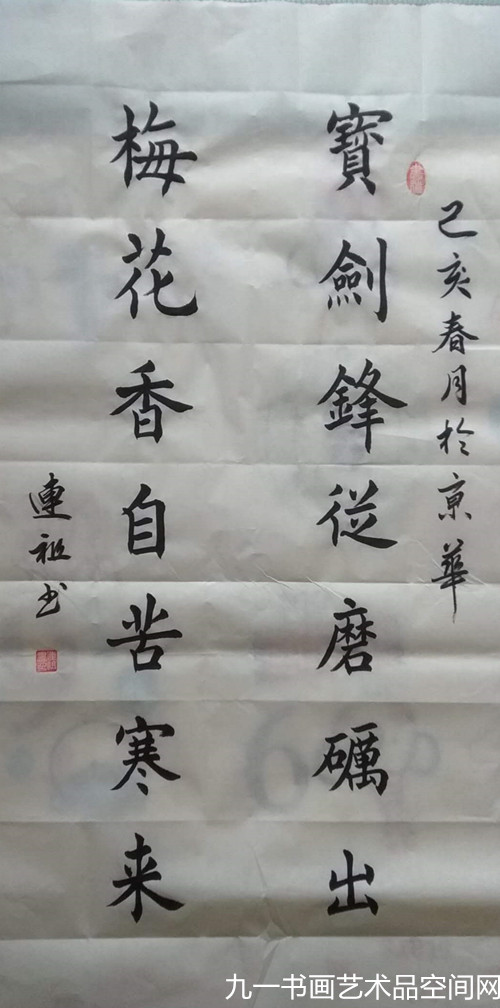 己亥春月於京華
寶劍鋒從磨礪出
梅花香自苦寒来
連祖书
九一书画艺术品空间网